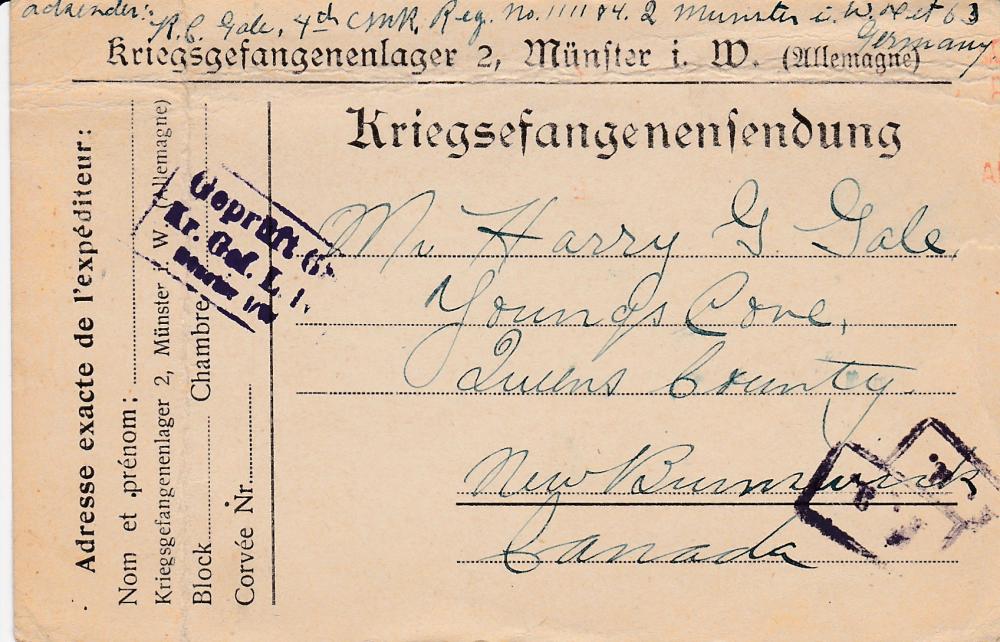 adsender: R. C. Gale, 4th CMR, Reg. No. 111184. 2 Munster i. W. Det 63
Germany
Kriegsgefangenenlager 2, Münster i. W. (Allemagne)
Kriegsefangenensendung
Mr Harry G Gale,
Youngs Cove,
Queens County
New Brunswick
Canada
Adresse exacte de l'expéditeur:
Nom et prénom:
Kriegsgefangenenlager 2, Münster i. W. (Allemagne)
Block Chambre
Corvée Nr.
Geprüft
Kr. Gef. L.